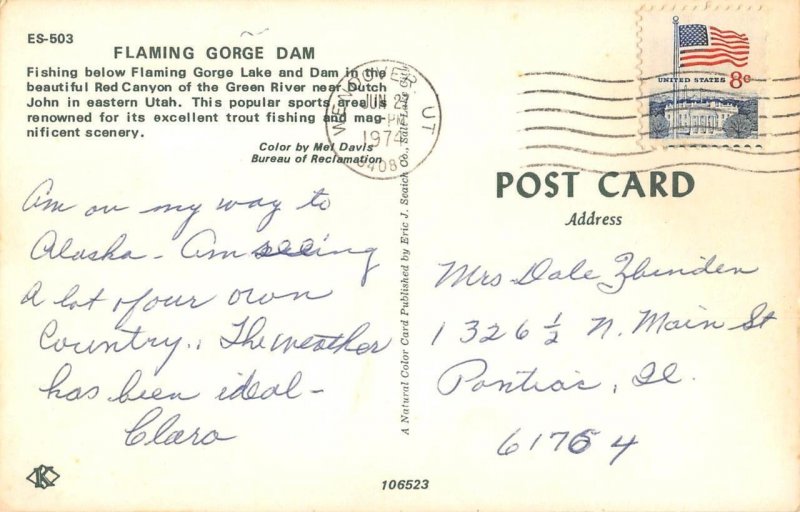 ES-503
FLAMING GORGE DAM
Fishing below Flaming Gorge Lake and Dam in the
beautiful Red Canyon of the Green River near Dutch
John in eastern Utah. This popular sports area is
renowned for its excellent trout fishing and mag-
nificent scenery.
Color by Mel Davis
Bureau of Reclamation
Am on my way to
Alaska - Am seeing
a lot of our own
Country.. The weather
has been ideal -
Clara
106523
A Natural Color Card Published by Eric J. Seaich Co., Salt Lake City
WENDOVER, UT
JUN 2
PM
1974
84083
UNITED STATES 8c
POST CARD
Address
Mrs Dale Zbinden
1326 ½ N. Main St
Pontiac, Il.
61764
K